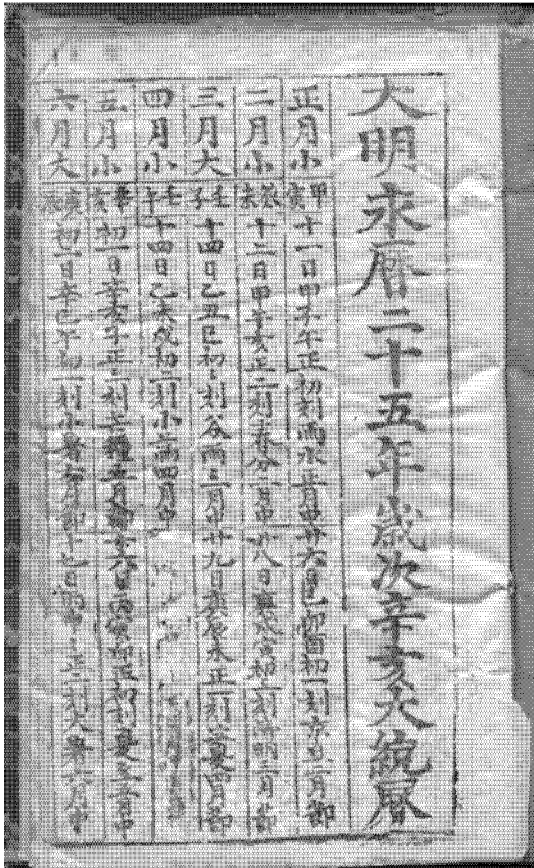 大明永曆二十五年歲次辛亥大統曆
正月小 甲寅 十一日甲子午正初刻雨水正月中 廿六日己卯酉初一刻 二月節
二月小 癸未 十二日甲午亥正二刻春分二月中 廿八日庚戌寅初 刻清明三月節
三月大 壬子 十四日乙丑巳初 刻谷雨三月中 廿九日庚辰未正一刻立夏四月節
四月小 壬午 十四日乙未戌初一刻小滿四月中
五月小 辛亥 初一日辛亥子正 刻芒種五月節 十六日丙寅卯正初刻夏至五月中
六月大 庚辰 初二日辛巳午初一刻小暑六月節 十七日丙申 二刻大暑六月中